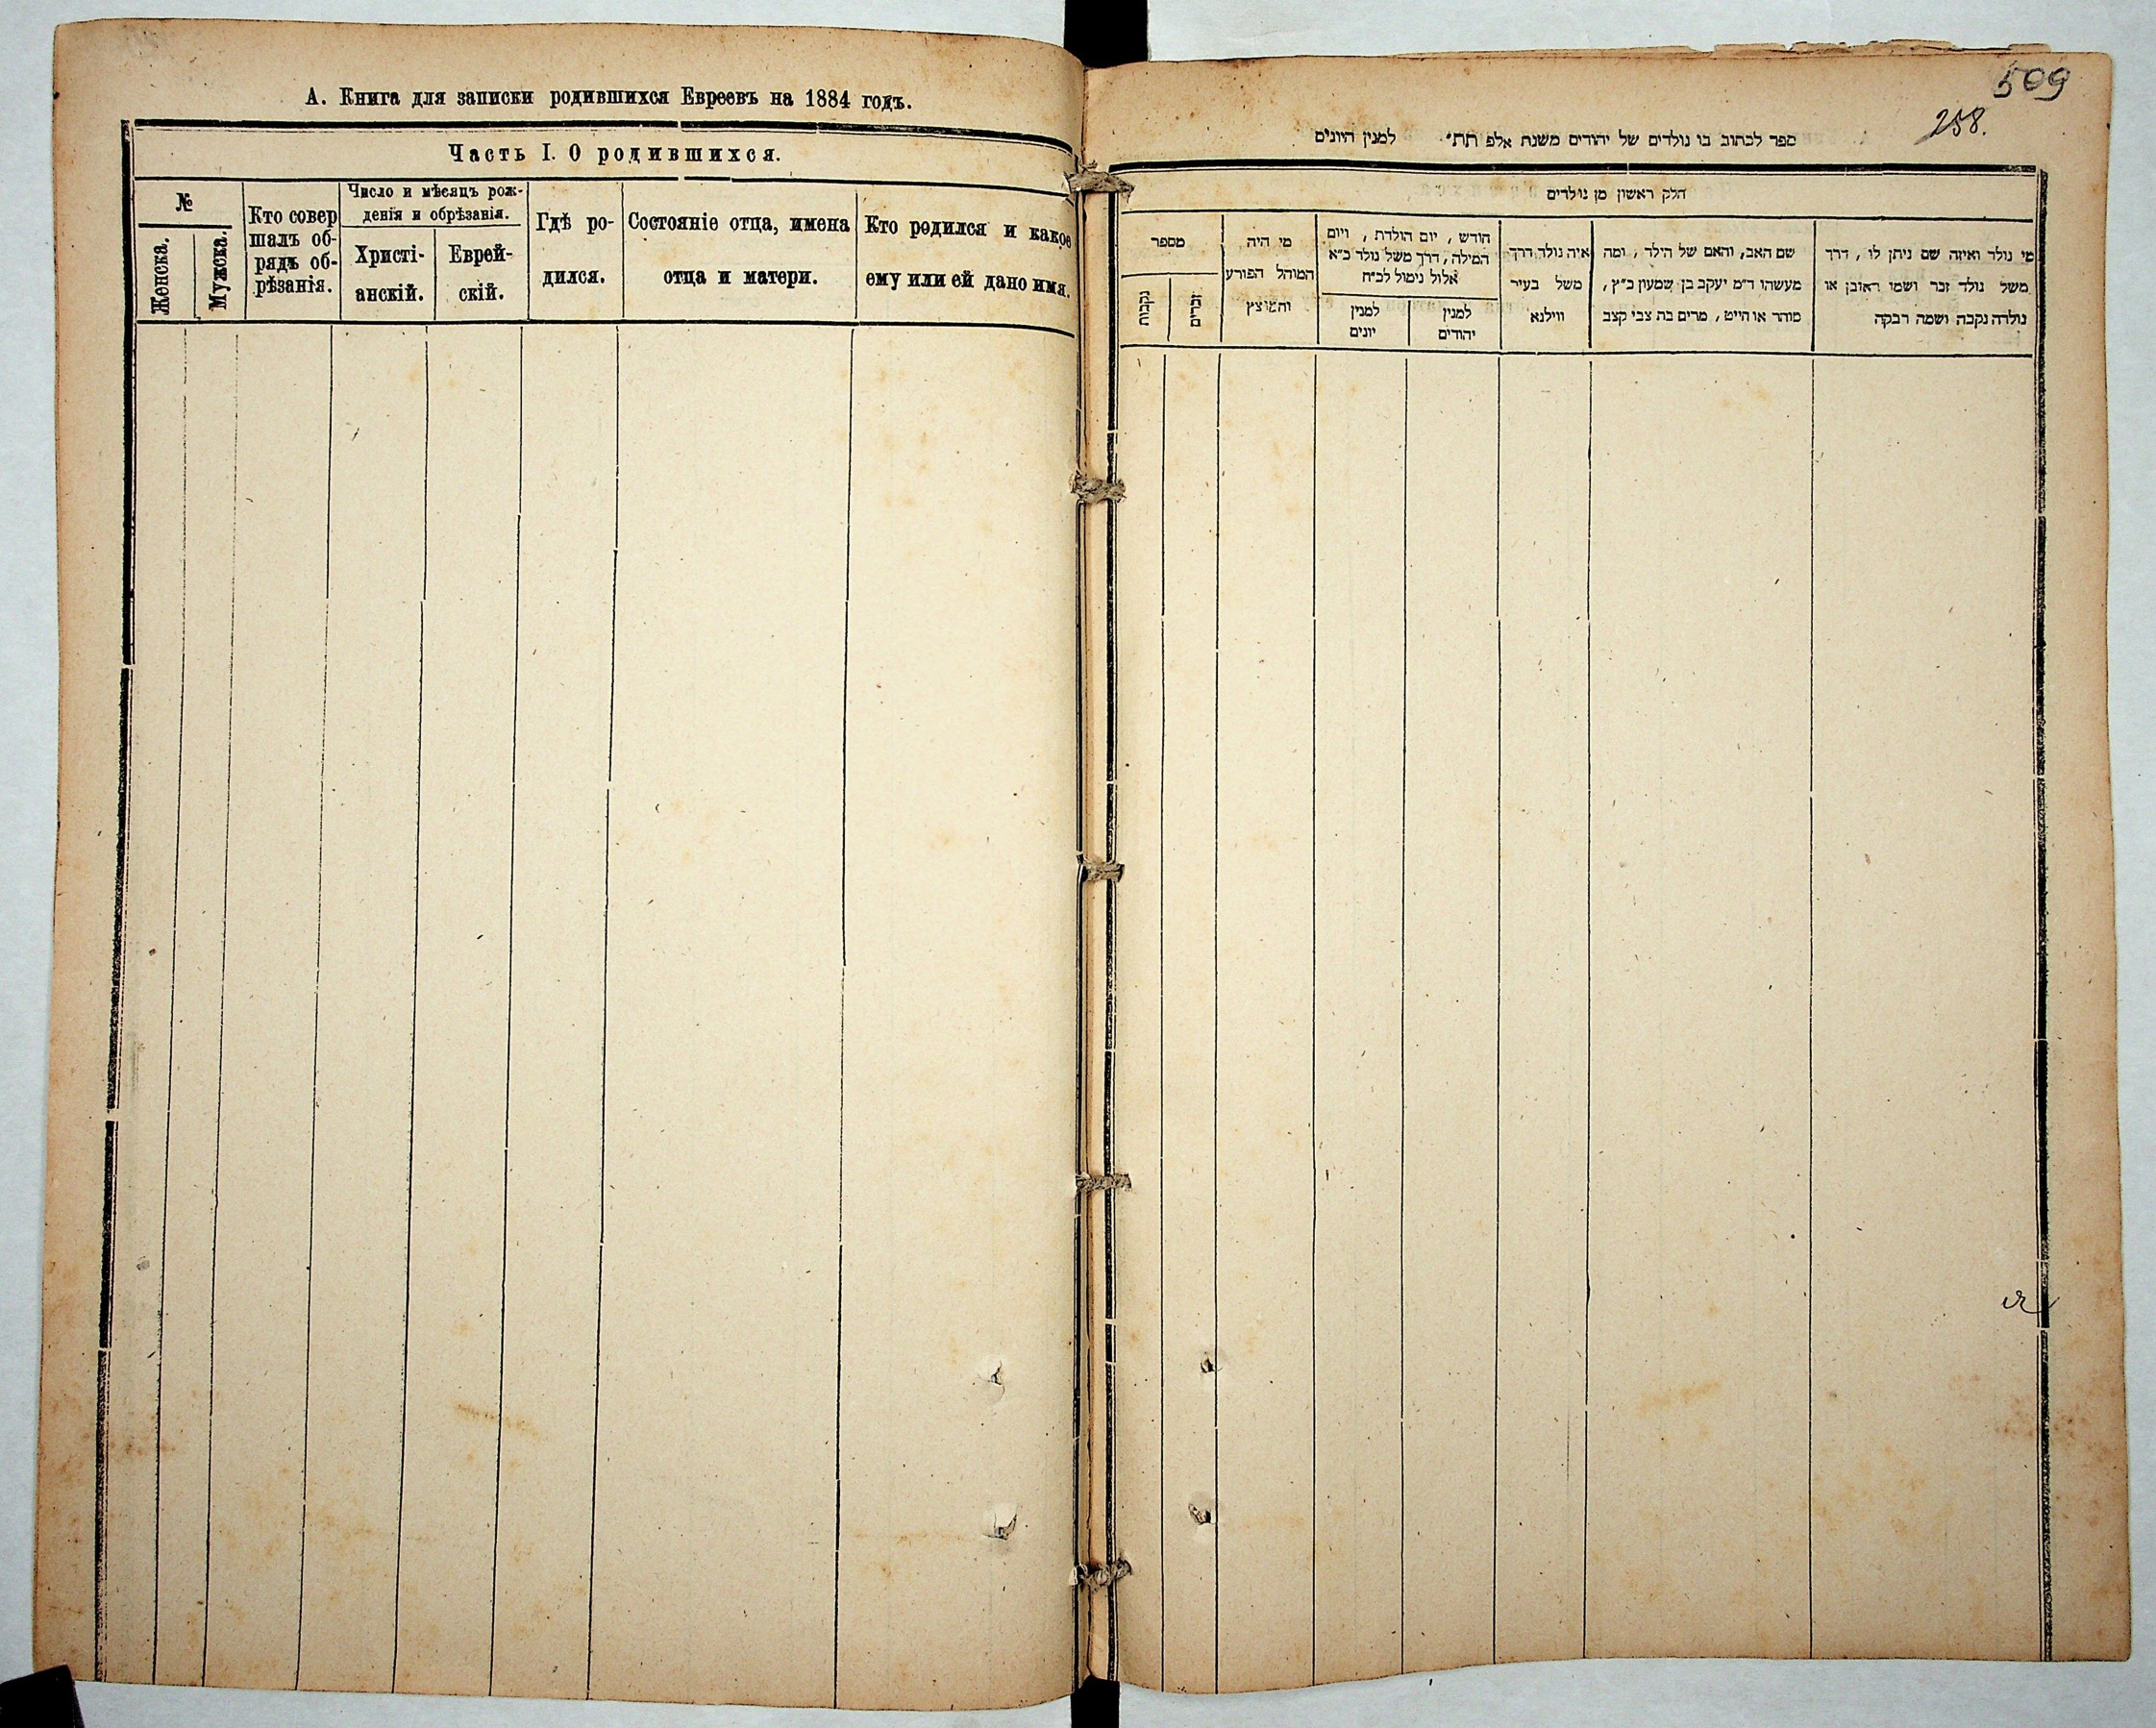 А. Книга для записки родившихся Евреевъ на 1884 годъ.
Часть I. О родившихся.
№
Женска.
Мужска.
Кто совер
шалъ об-
рядъ об-
рѣзанія.
Число и мѣсяцъ рож-
денія и обрѣзанія.
Христі-
анскій.
Еврей-
скій.
Гдѣ ро-
дился.
Состояніе отца, имена
отца и матери.
Кто родился и какое
ему или ей дано имя.
509
258.
ספר לכתוב בו נולדים של יהודים משנת אלפ תת״ למנין היונים
חלק ראשון מן נולדים
מי נולד ואיזה שם ניתן לו , דרך
משל נולד זכר ושמו ראובן או
נולדה נקבה ושמה רבקה
שם האב, והאם של הילד , ומה
מעשהו ד״מ יעקב בן שמעון כ״ץ,
סוחר או חייט, מרים בת צבי קצב
איה נולד דרך
משל בעיר
ווילנא
חודש , יום הולדת , ויום
המילה, דרך משל נולד כ״א
אלול נימול לכ״ח
למנין
יהודים
למנין
יונים
מי היה
המוהל הפורע
והמוצץ
מספר
זכרים
נקבות